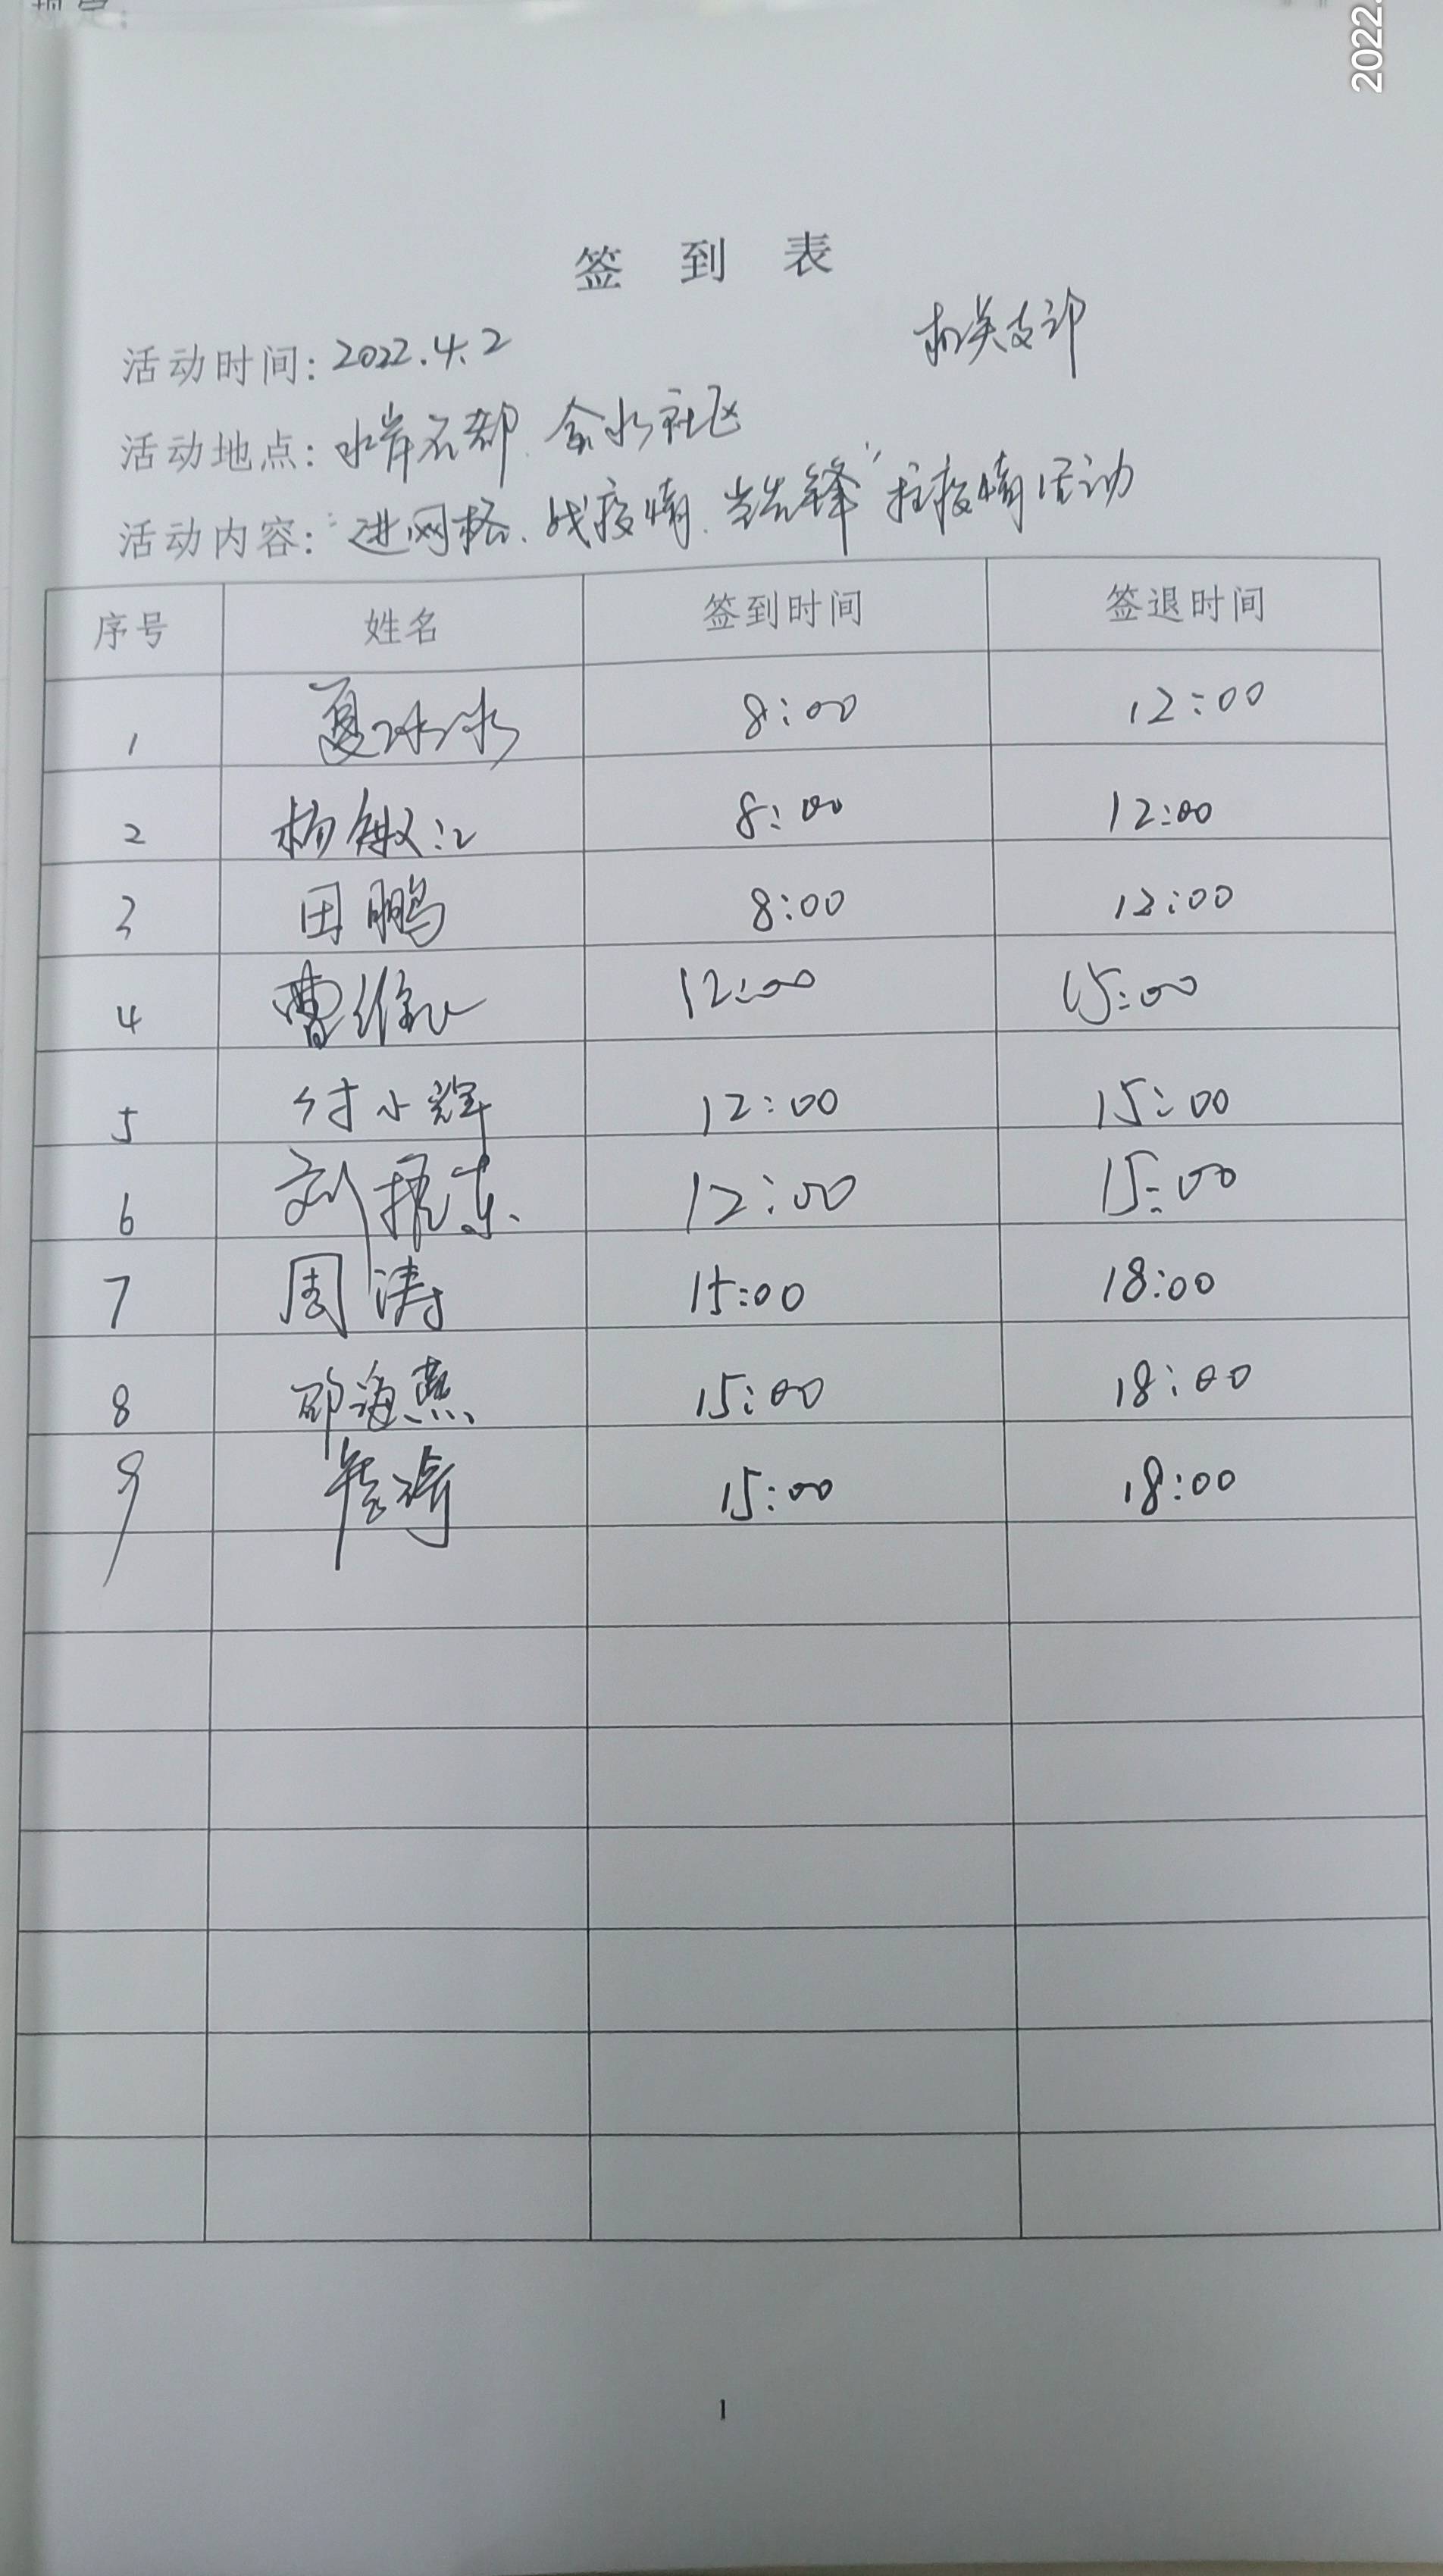 2022.
签 到 表
机关支部
活动时间: 2022.4.2
活动地点: 水岸名都、金水社区
活动内容: "进网格、战疫情、当先锋"抗疫情活动
序号 姓名 签到时间 签退时间
1 夏冰冰 8:00 12:00
2 杨 8:00 12:00
3 田鹏 8:00 12:00
4 曹维 12:00 15:00
5 付小辉 12:00 15:00
6 刘振东 12:00 15:00
7 周涛 15:00 18:00
8 邵海燕 15:00 18:00
9 15:00 18:00
1